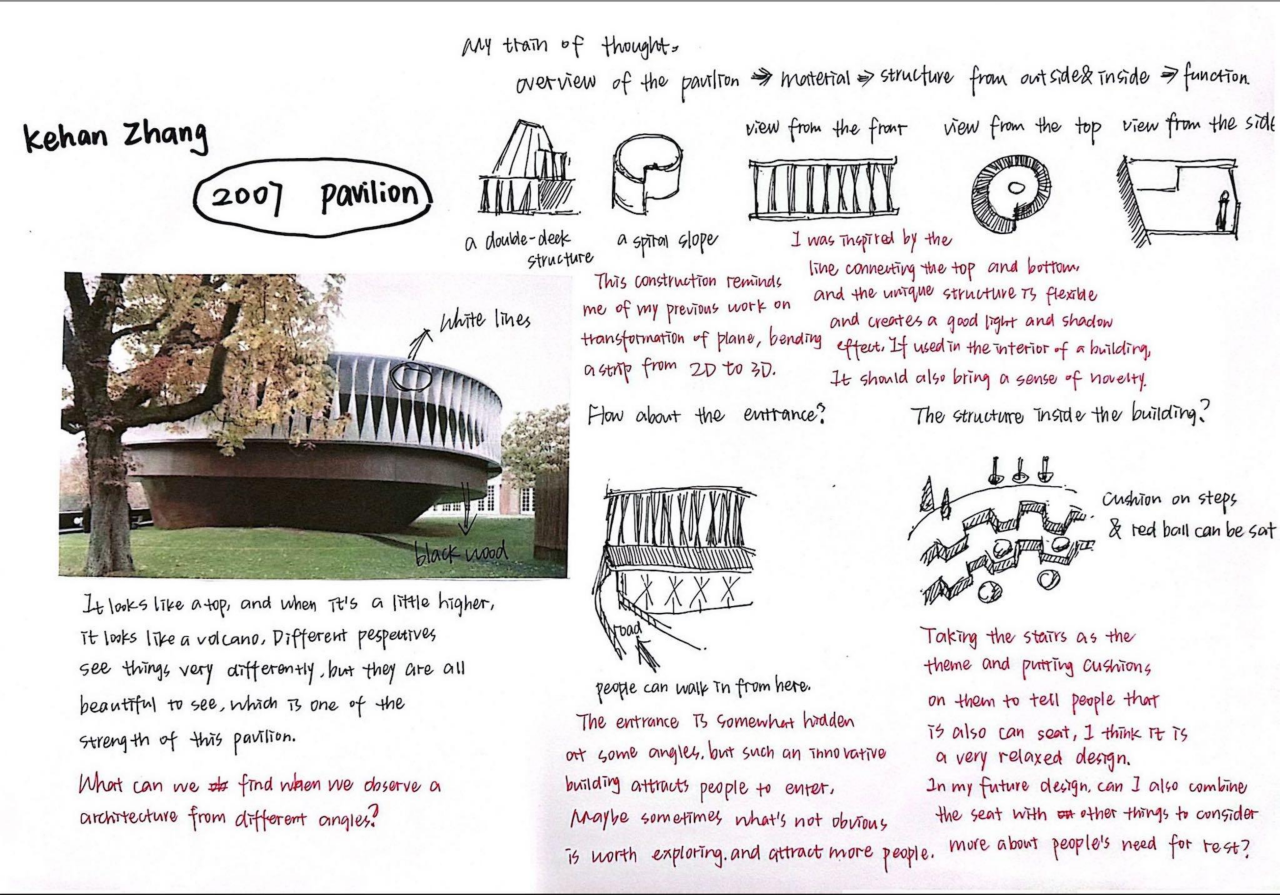 My train of thought:
overview of the pavilion ⇒ material ⇒ structure from outside & inside ⇒ function
Kehan Zhang
2007 pavilion
a double-deck
structure
a spiral slope
view from the front
view from the top
view from the side
This construction reminds
me of my previous work on
transformation of plane, bending
a strip from 2D to 3D.
I was inspired by the
line connecting the top and bottom,
and the unique structure is flexible
and creates a good light and shadow
effect. If used in the interior of a building,
It should also bring a sense of novelty.
White lines
black wood
It looks like a top, and when it's a little higher,
it looks like a volcano. Different pespectives
see things very differently, but they are all
beautiful to see, which is one of the
strength of this pavilion.
What can we find when we observe a
architecture from different angles?
How about the entrance?
road
people can walk in from here.
The entrance is somewhat hidden
at some angles, but such an innovative
building attracts people to enter,
Maybe sometimes what's not obvious
is worth exploring, and attract more people.
The structure inside the building?
Cushion on steps
& red ball can be sat
Taking the stairs as the
theme and putting cushions
on them to tell people that
is also can seat, I think it is
a very relaxed design.
In my future design, can I also combine
the seat with other things to consider
more about people's need for rest?